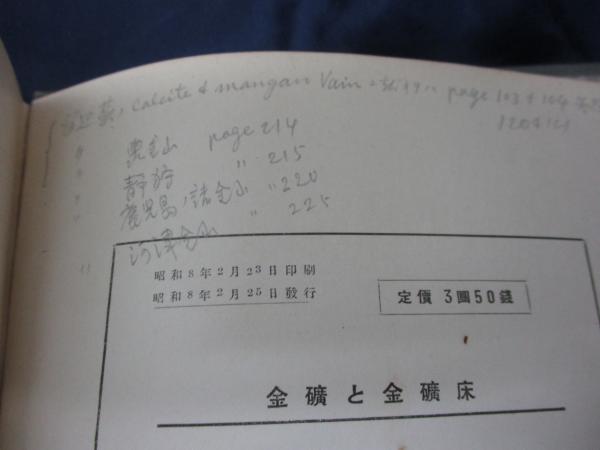 Calcite & mangan Vain page 103 + 104
120 + 121
金山 page 214
静狩 〃 215
鹿児島ノ諸金山 〃 220
河津金山 〃 225
昭和8年2月23日印刷
昭和8年2月25日發行
定價 3圓50錢
金礦と金礦床